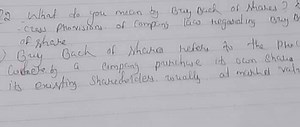 What do you mean by Buy Back of shares ?
provisions of company law regarding Buy B
of share
Buy Back of shares refers to the
a company purchase its own shares
its existing shareholders usually at market